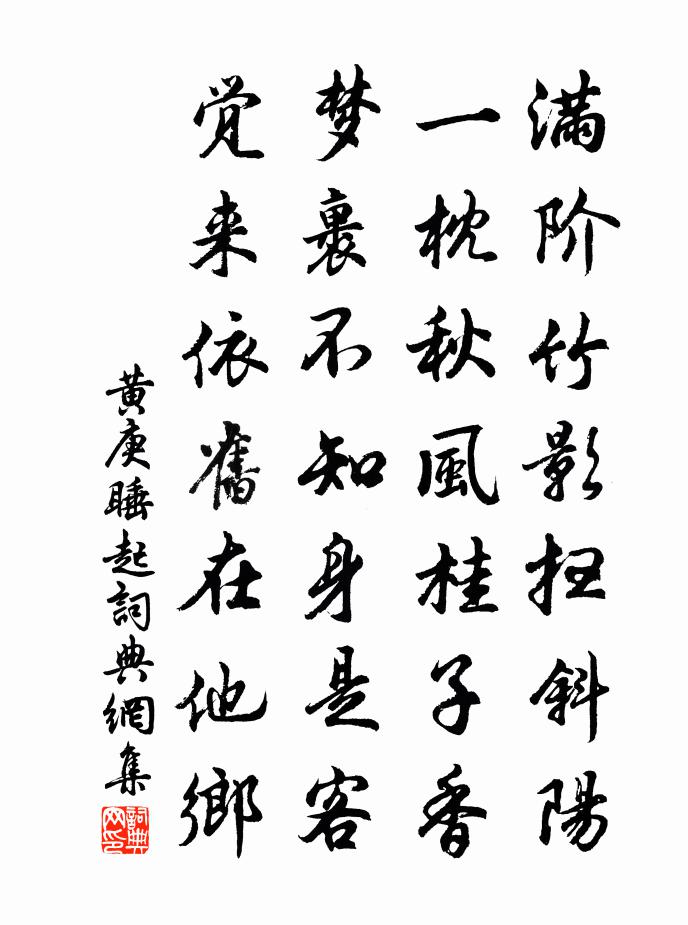 满阶竹影扫斜陽
一枕秋風桂子香
梦裏不知身是客
覚来依舊在他鄉
黄庚睡起詞典網集
詞典网印